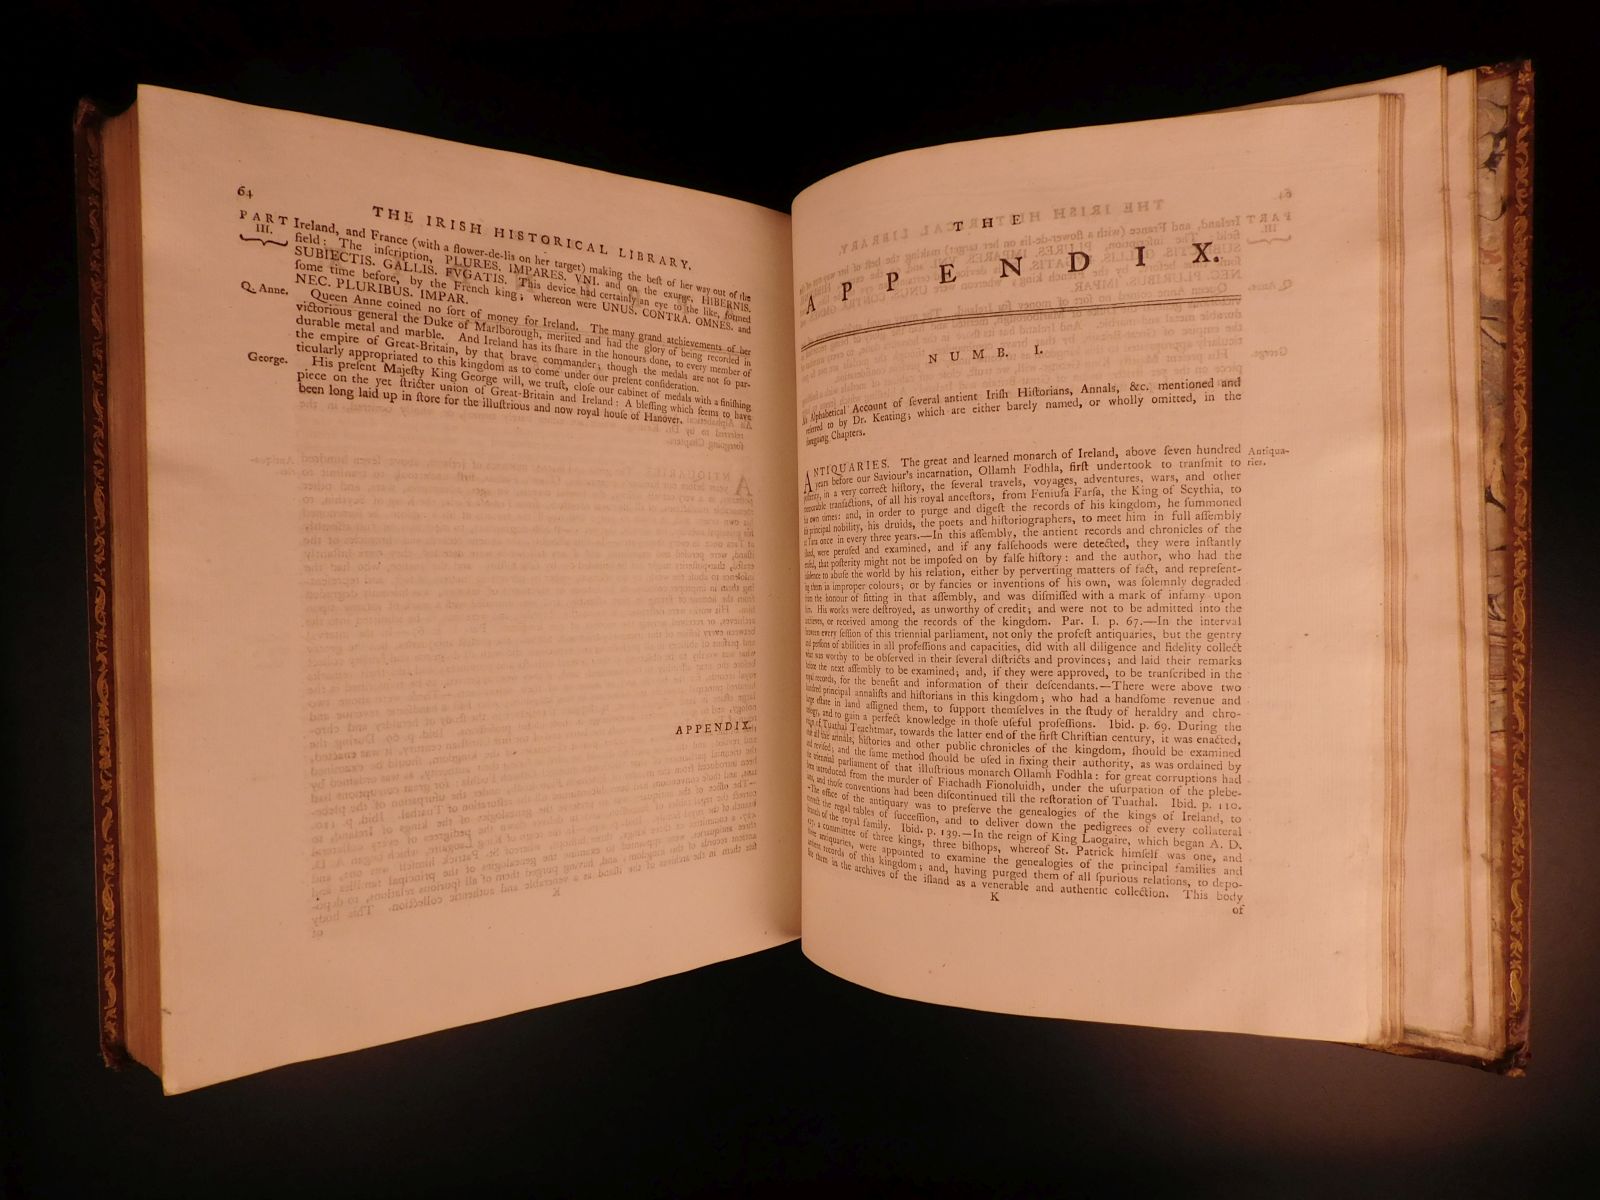 64
THE IRISH HISTORICAL LIBRARY.
PART III.
Ireland, and France (with a flower-de-lis on her target) making the beſt of her way out of the
field: The inſcription, PLURES. IMPARES. VNI. and on the exurge, HIBERNIS.
SUBIECTIS. GALLIS. FVGATIS. This device had certainly an eye to the like, formed
ſome time before, by the French king; whereon were UNUS. CONTRA. OMNES. and
NEC. PLURIBUS. IMPAR.
Q. Anne.
Queen Anne coined no ſort of money for Ireland. The many grand atchievements of her
victorious general the Duke of Marlborough, merited and had the glory of being recorded in
durable metal and marble. And Ireland has its ſhare in the honours done, to every member of
the empire of Great-Britain, by that brave commander; though the medals are not ſo par-
ticularly appropriated to this kingdom as to come under our preſent conſideration.
George.
His preſent Majeſty King George will, we truſt, cloſe our cabinet of medals with a finiſhing
piece on the yet ſtricter union of Great-Britain and Ireland: A bleſſing which ſeems to have
been long laid up in ſtore for the illuſtrious and now royal houſe of Hanover.
APPENDIX.
THE
APPENDIX.
NUMB. I.
An Alphabetical Account of ſeveral antient Iriſh Hiſtorians, Annals, &c. mentioned and
referred to by Dr. Keating; which are either barely named, or wholly omitted, in the
foregoing Chapters.
ANTIQUARIES. The great and learned monarch of Ireland, above ſeven hundred
Antiqua-
ries.
years before our Saviour's incarnation, Ollamh Fodhla, firſt undertook to tranſmit to
poſterity, in a very correct hiſtory, the ſeveral travels, voyages, adventures, wars, and other
memorable tranſactions, of all his royal anceſtors, from Feniuſa Farſa, the King of Scythia, to
his own times: and, in order to purge and digeſt the records of his kingdom, he ſummoned
his principal nobility, his druids, the poets and hiſtoriographers, to meet him in full aſſembly
at Tara once in every three years.—In this aſſembly, the antient records and chronicles of the
iſland, were peruſed and examined, and if any falſehoods were detected, they were inſtantly
eraſed, that poſterity might not be impoſed on by falſe hiſtory: and the author, who had the
inſolence to abuſe the world by his relation, either by perverting matters of fact, and repreſent-
ing them in improper colours; or by fancies or inventions of his own, was ſolemnly degraded
from the honour of ſitting in that aſſembly, and was diſmiſſed with a mark of infamy upon
him. His works were deſtroyed, as unworthy of credit; and were not to be admitted into the
archieves, or received among the records of the kingdom. Par. I. p. 67.—In the interval
between every ſeſſion of this triennial parliament, not only the profeſt antiquaries, but the gentry
and perſons of abilities in all profeſſions and capacities, did with all diligence and fidelity collect
what was worthy to be obſerved in their ſeveral diſtricts and provinces; and laid their remarks
before the next aſſembly to be examined; and, if they were approved, to be tranſcribed in the
royal records, for the benefit and information of their deſcendants.—There were above two
hundred principal annaliſts and hiſtorians in this kingdom; who had a handſome revenue and
large eſtate in land aſſigned them, to ſupport themſelves in the ſtudy of heraldry and chro-
nology, and to gain a perfect knowledge in thoſe uſeful profeſſions. Ibid. p. 69. During the
reign of Tuathal Teachtmar, towards the latter end of the firſt Chriſtian century, it was enacted,
that all the annals, hiſtories and other public chronicles of the kingdom, ſhould be examined
and reviſed; and the ſame method ſhould be uſed in fixing their authority, as was ordained by
the triennial parliament of that illuſtrious monarch Ollamh Fodhla: for great corruptions had
been introduced from the murder of Fiachadh Fionoluidh, under the uſurpation of the plebe-
ians, and thoſe conventions had been diſcontinued till the reſtoration of Tuathal. Ibid. p. 110.
—The office of the antiquary was to preſerve the genealogies of the kings of Ireland, to
correct the regal tables of ſucceſſion, and to deliver down the pedigrees of every collateral
branch of the royal family. Ibid. p. 139.—In the reign of King Laogaire, which began A. D.
427, a committee of three kings, three biſhops, whereof St. Patrick himſelf was one, and
three antiquaries, were appointed to examine the genealogies of the principal families and
antient records of this kingdom; and, having purged them of all ſpurious relations, to depo-
ſite them in the archives of the iſland as a venerable and authentic collection. This body
K
of